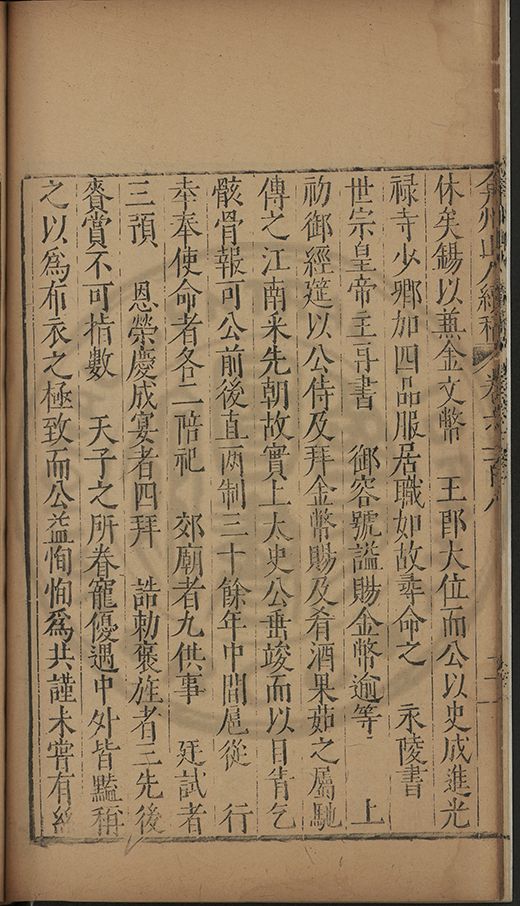 弇州山人續稿 卷之一百八
休矣錫以蒹金文幣　王郎大位而公以史成進光
祿寺少卿加四品服居職如故奉命之　永陵書
世宗皇帝主再書　御容號謚賜金幣逾等　上
初御經筵以公侍及拜金幣賜及肴酒果茹之屬馳
傳之江南采先朝故實上太史公垂竣而以目眚乞
骸骨報可公前後直两制三十餘年中間扈從　行
奉奉使命者各二陪祀　郊廟者九供事　廷試者
三預　恩榮慶成宴者四拜　誥勅褒旌者三先後
賚賞不可指數　天子之所眷寵優遇中外皆豔稱
之以為布衣之極致而公益恂恂為共謹未嘗有